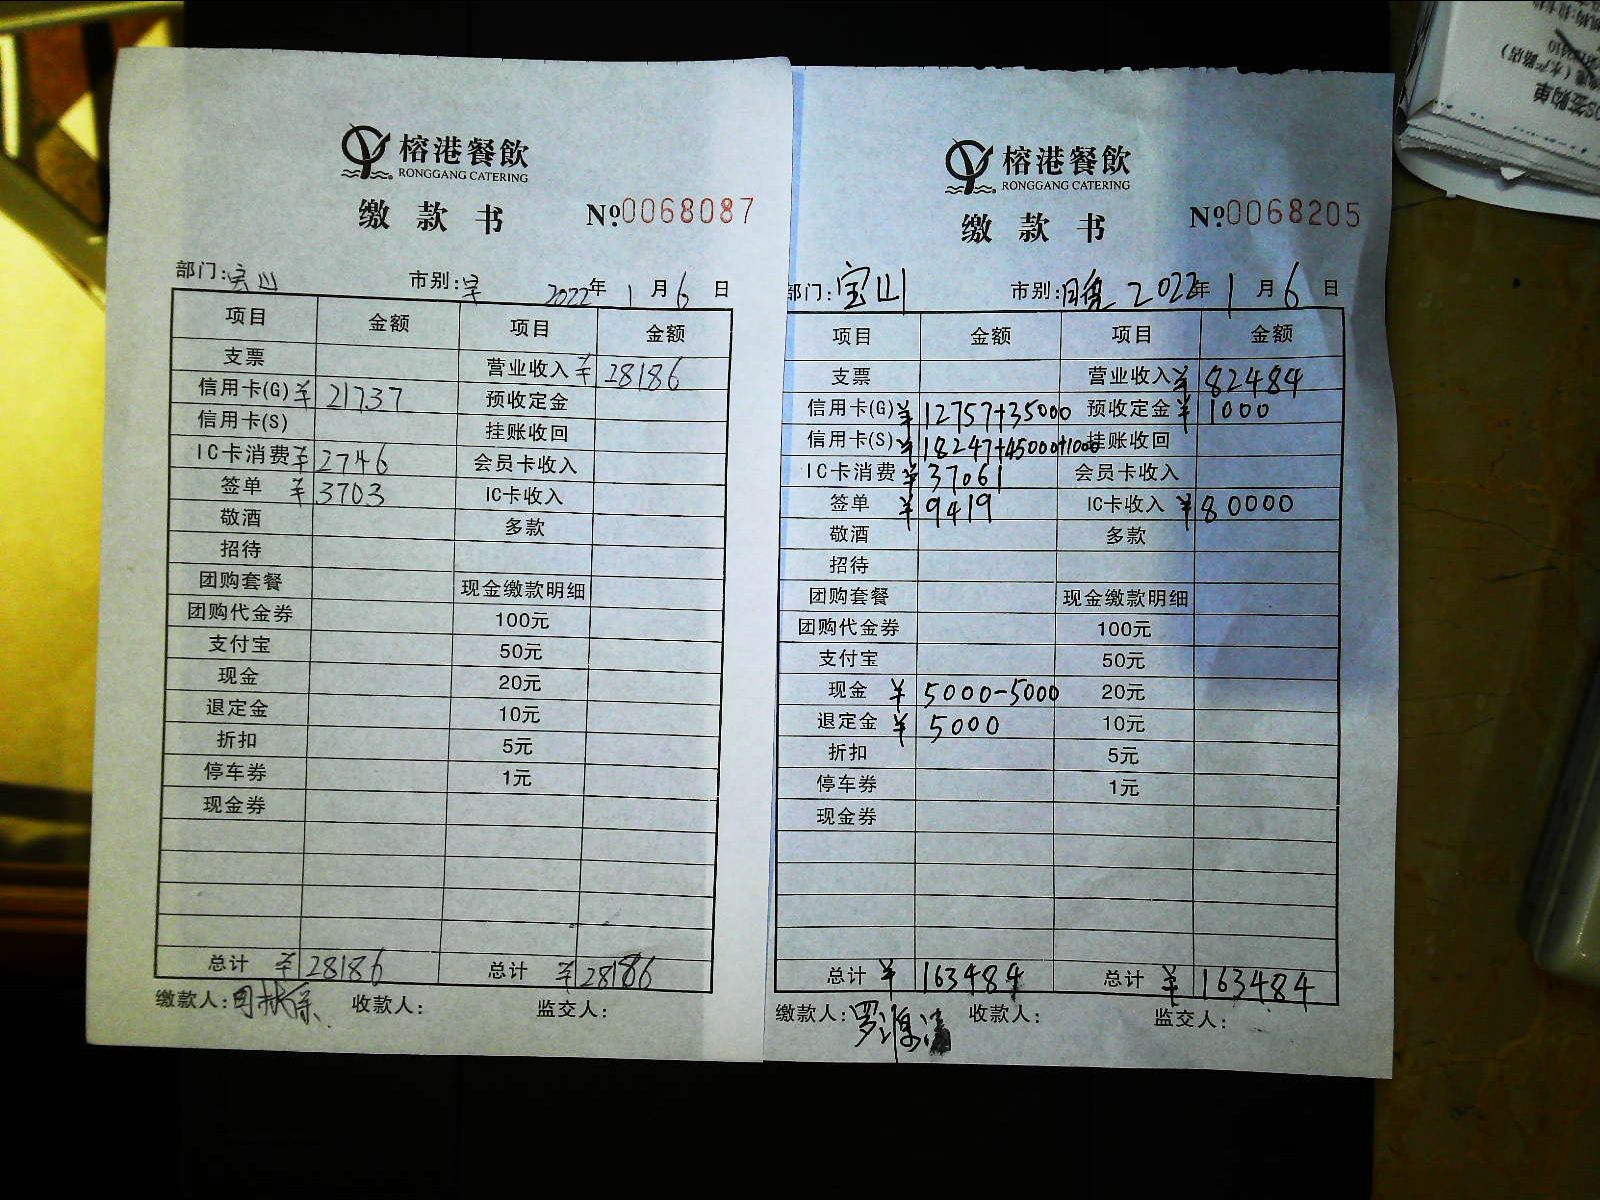 榕港餐飲
RONGGANG CATERING
缴款书 №0068087
部门:宝山 市别: 2022年1月6日
项目 金额 项目 金额
支票 营业收入 ¥28186
信用卡(G) ¥21737 预收定金
信用卡(S) 挂账收回
IC卡消费 ¥2746 会员卡收入
签单 ¥3703 IC卡收入
敬酒 多款
招待
团购套餐 现金缴款明细
团购代金券 100元
支付宝 50元
现金 20元
退定金 10元
折扣 5元
停车券 1元
现金券
总计 ¥28186 总计 ¥28186
缴款人: 收款人: 监交人:
榕港餐飲
RONGGANG CATERING
缴款书 №0068205
部门:宝山 市别:晚 2022年1月6日
项目 金额 项目 金额
支票 营业收入 ¥82484
信用卡(G) ¥12757+35000 预收定金 ¥1000
信用卡(S) ¥18247+45000+1000 挂账收回
IC卡消费 ¥37061 会员卡收入
签单 ¥9419 IC卡收入 ¥80000
敬酒 多款
招待
团购套餐 现金缴款明细
团购代金券 100元
支付宝 50元
现金 ¥5000-5000 20元
退定金 ¥5000 10元
折扣 5元
停车券 1元
现金券
总计 ¥163484 总计 ¥163484
缴款人:罗 收款人: 监交人:
(水产路店)
签购单